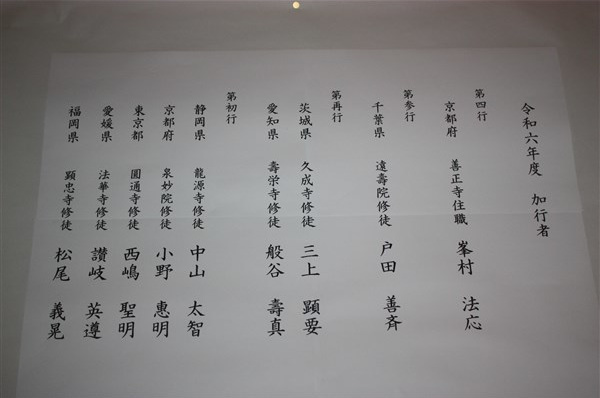 令和六年度 加行者
第四行
京都府 善正寺住職 峯村 法応
第参行
千葉県 遠壽院修徒 戸田 善斉
第再行
茨城県 久成寺修徒 三上 顕要
愛知県 壽栄寺修徒 般谷 壽真
第初行
静岡県 龍源寺修徒 中山 太智
京都府 泉妙院修徒 小野 惠明
東京都 圓通寺修徒 西嶋 聖明
愛媛県 法華寺修徒 讃岐 英遵
福岡県 顕忠寺修徒 松尾 義晃